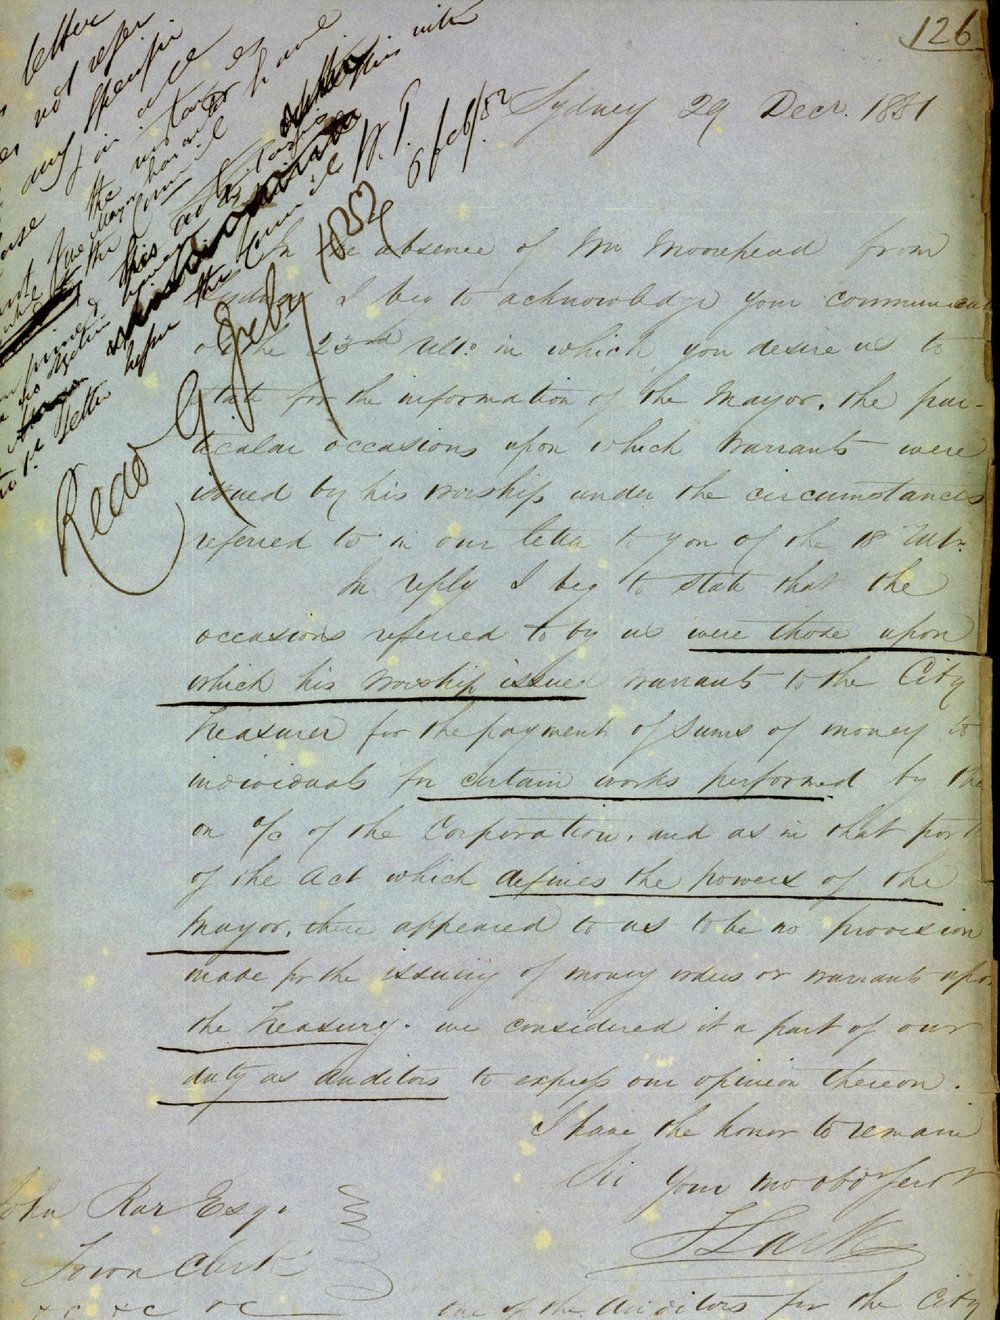 126
Sydney 29 Decr. 1851
In the absence of Mr Moorehead from
Sydney I beg to acknowledge your communicat
of the 23rd Ulto. in which you desire us to
state for the information of the Mayor, the par-
ticular occasions upon which Warrants were
issued by his Worship under the circumstances
referred to in our letter to you of the 18 Ulto.
In reply I beg to state that the
occasions referred to by us were those upon
which his Worship issued Warrants to the City
Treasurer for the payment of sums of money to
individuals for certain works performed by the
on a/c of the Corporation, and as in that port
of the Act which defines the powers of the
Mayor, there appeared to us to be no provision
made for the issuing of money orders or warrants upon
the Treasury. we considered it a part of our
duty as auditors to express our opinion thereon.
I have the honor to remain
Sir your mo obdt Servt
John Rae Esqr.
Town Clerk
&c &c &c
one of the Auditors for the City
letter
not refer
any specific
the
this
before the Council W. T.
6 feb/52
Read 9 Feby 1852